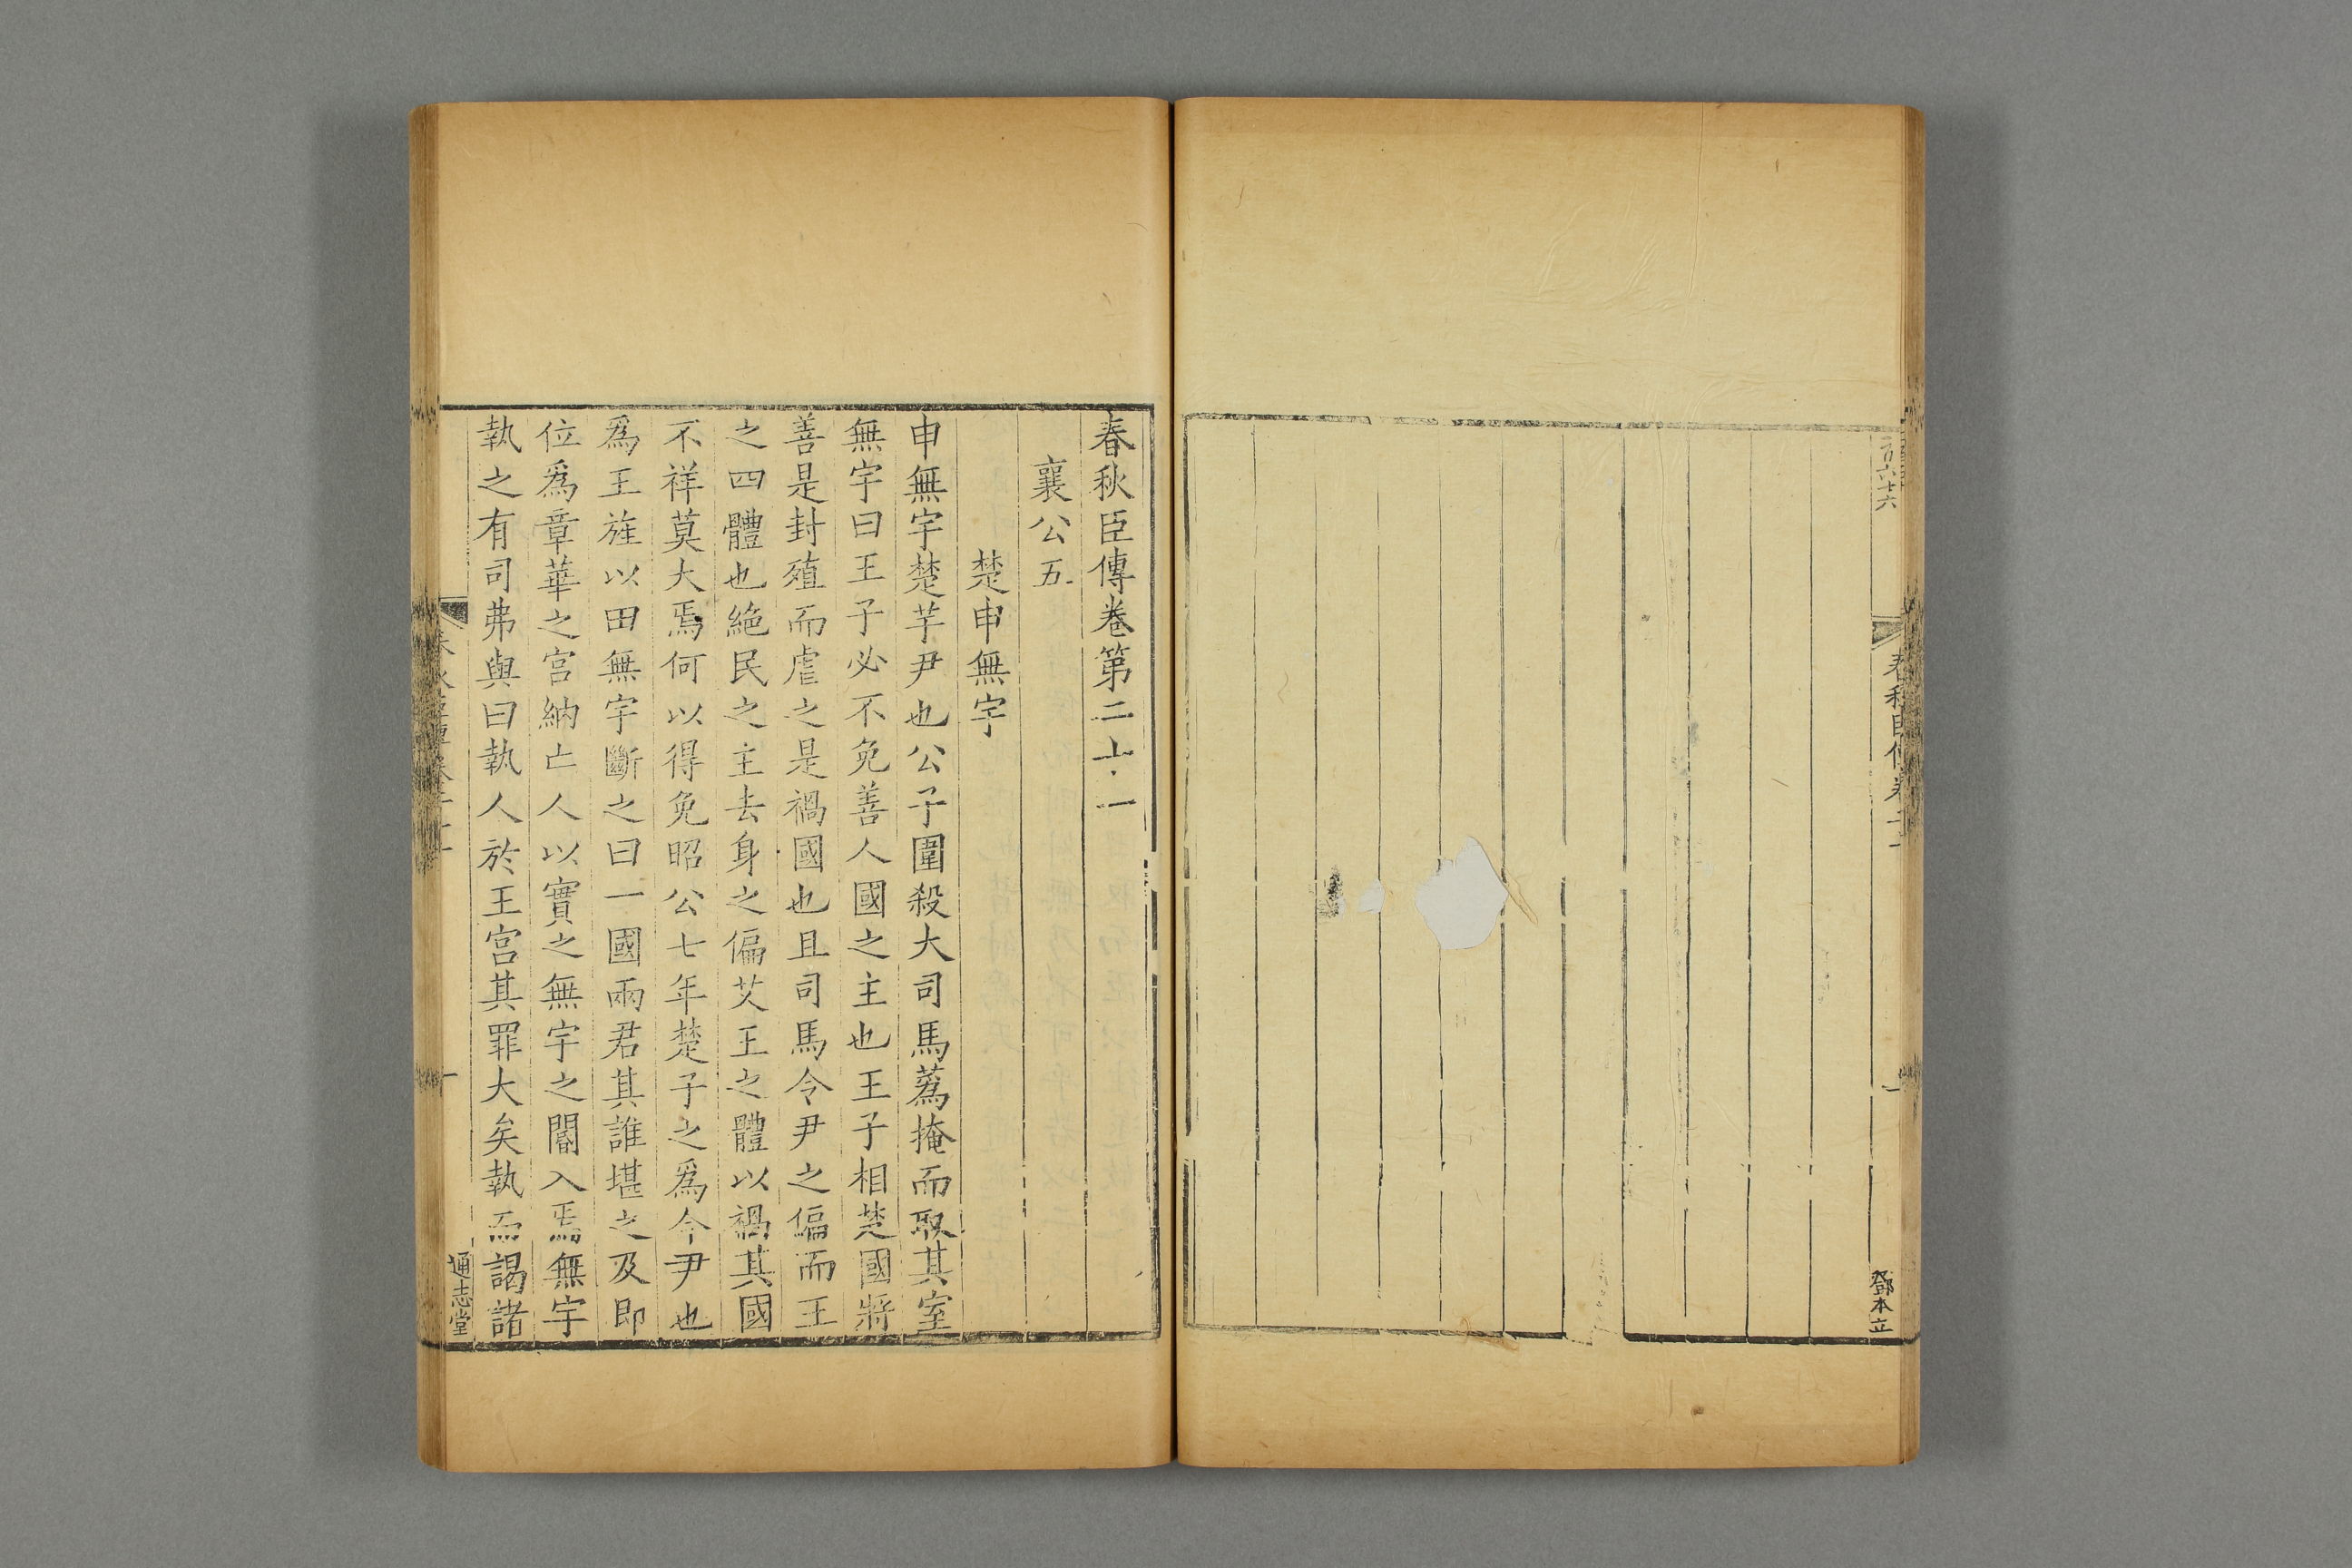 春秋臣傳卷第二十一
襄公五
楚申無宇
申無宇楚芋尹也公子圍殺大司馬蒍掩而取其室
無宇曰王子必不免善人國之主也王子相楚國將
善是封殖而虐之是禍國也且司馬令尹之偏而王
之四體也絶民之主去身之偏艾王之體以禍其國
不祥莫大焉何以得免昭公七年楚子之爲令尹也
爲王旌以田無宇斷之曰一國兩君其誰堪之及即
位爲章華之宮納亡人以實之無宇之閽入焉無宇
執之有司弗與曰執人於王宮其罪大矣執而謁諸
通志堂
一
鄧本立